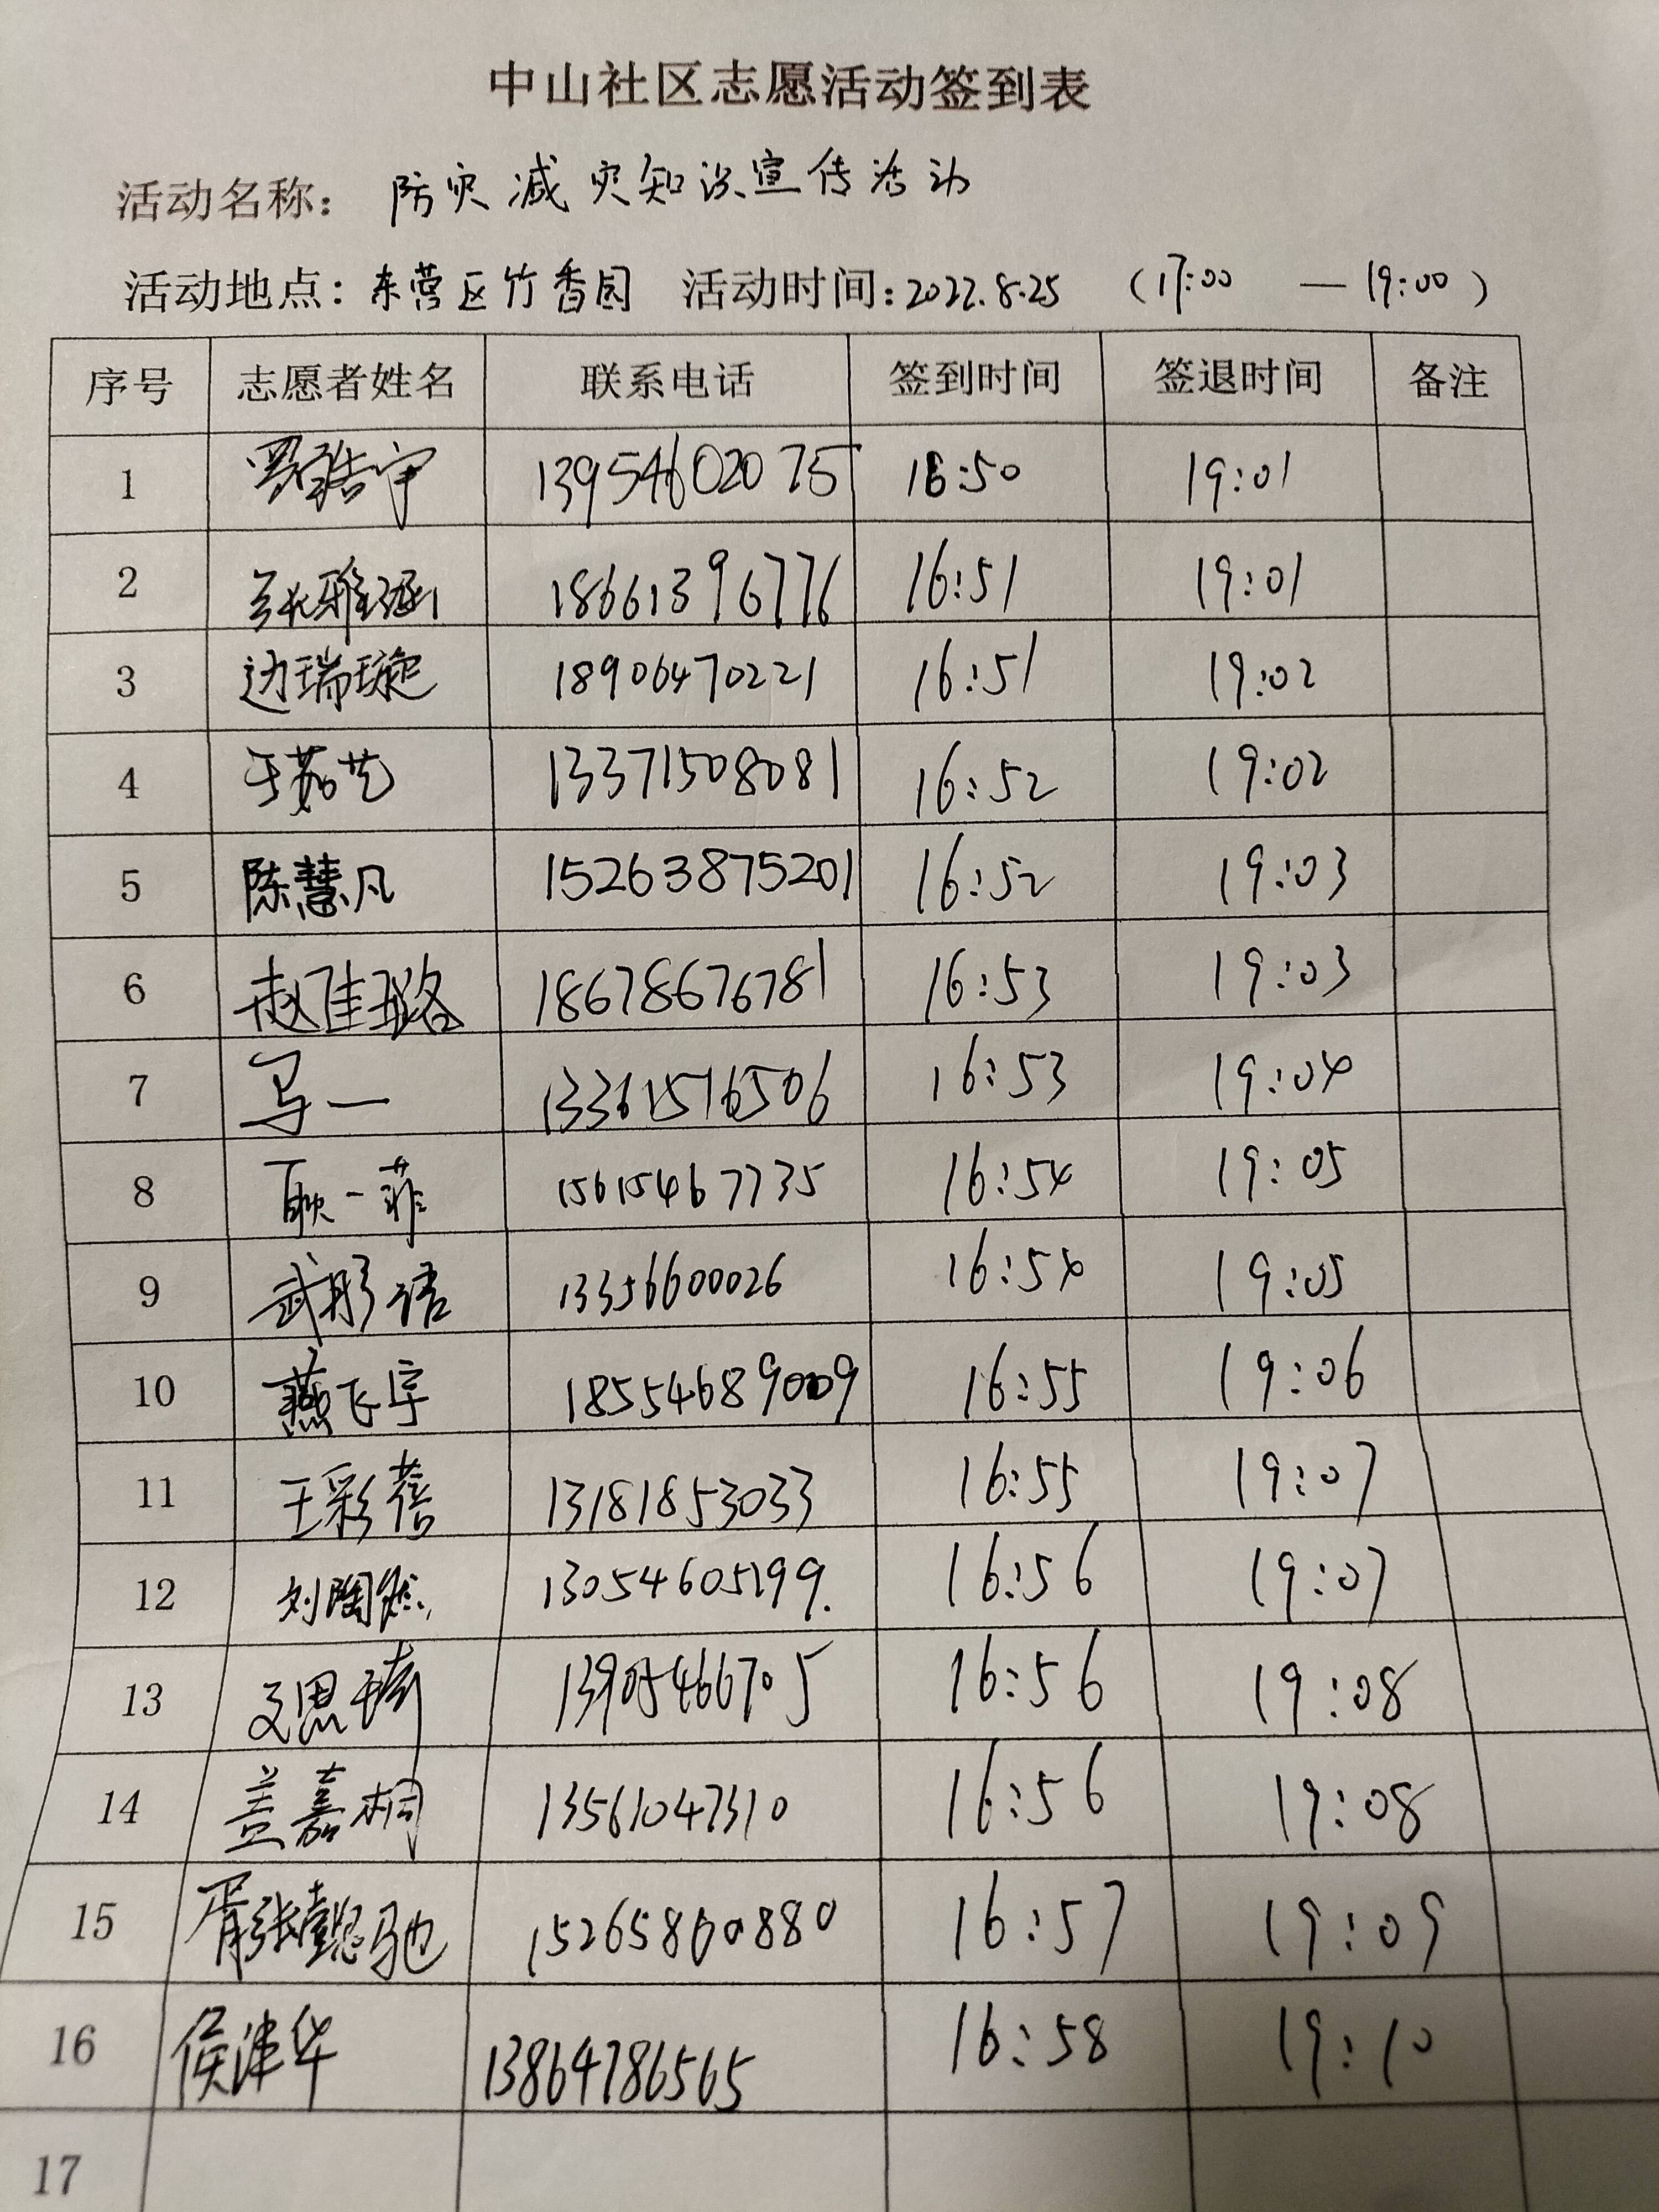 中山社区志愿活动签到表
活动名称: 防灾减灾知识宣传活动
活动地点: 东营区竹香园 活动时间: 2022.8.25 (17:00 — 19:00)
序号 志愿者姓名 联系电话 签到时间 签退时间 备注
1 13954602075 16:50 19:01
2 18661396776 16:51 19:01
3 边瑞璇 18906470221 16:51 19:02
4 于茹艺 13371508081 16:52 19:02
5 陈慧凡 15263875201 16:52 19:03
6 赵佳璐 18678676781 16:53 19:03
7 13361516506 16:53 19:04
8 耿一菲 15615467735 16:54 19:05
9 武彤语 13356600026 16:54 19:05
10 燕飞宇 18554689009 16:55 19:06
11 王彩蓓 13181853033 16:55 19:07
12 刘陶然 13054605199. 16:56 19:07
13 13905466705 16:56 19:08
14 盖嘉桐 13561047310 16:56 19:08
15 15265800880 16:57 19:09
16 侯津华 13864786565 16:58 19:10
17